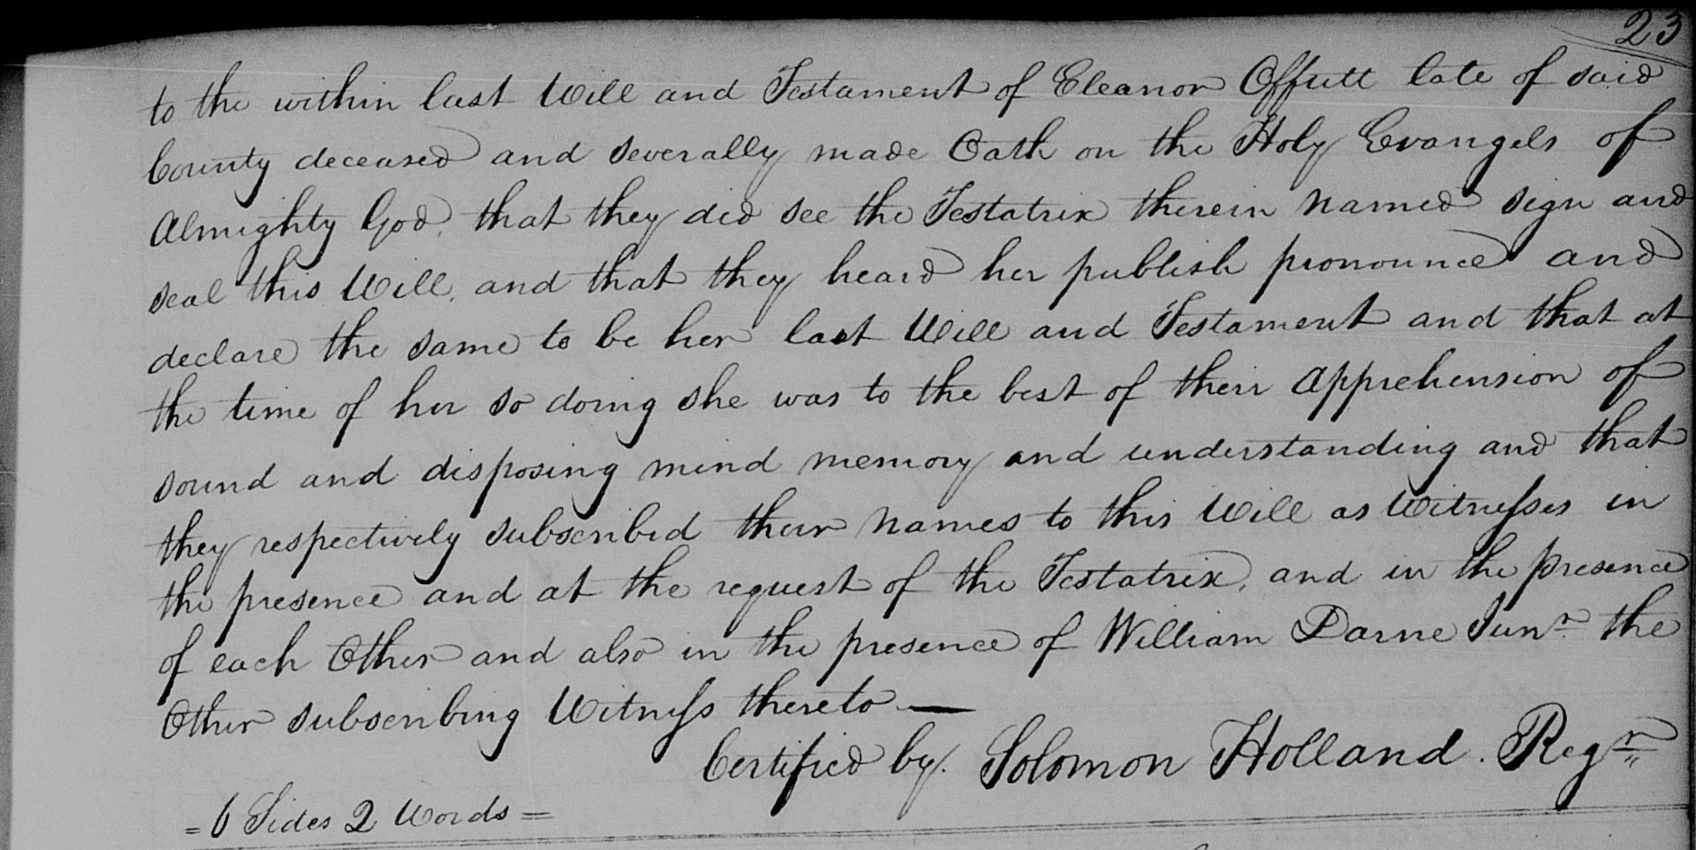 23
to the within last Will and Testament of Eleanor Offutt late of said
County deceased and severally made Oath on the Holy Evangels of
Almighty God, that they did see the Testatrix therein named sign and
seal this Will, and that they heard her publish pronounce and
declare the same to be her last Will and Testament and that at
the time of her so doing she was to the best of their apprehension of
sound and disposing mind memory and understanding and that
they respectively subscribed their names to this Will as Witnesses in
the presence and at the request of the Testatrix, and in the presence
of each Other and also in the presence of William Darne Junr the
Other subscribing Witness thereto —
Certified by. Solomon Holland. Regr
= 6 Sides 2 Words =